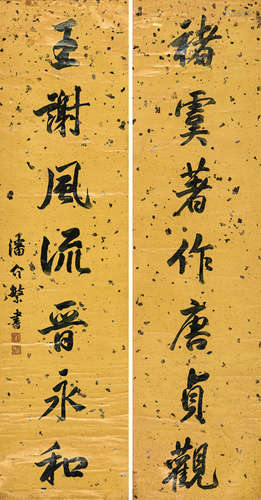 褚虞著作唐貞觀
王謝風流晉永和
潘介繁書